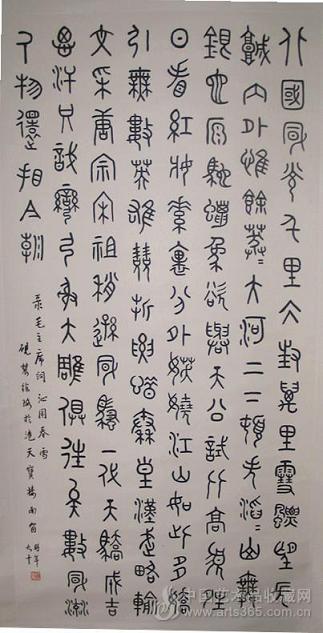 北國風光千里冰封萬里雪飄望長
城內外惟餘莽〻大河上下頓失滔〻山舞
銀蛇原馳蠟象欲與天公試比高須晴
日看紅妝素裹分外妖嬈江山如此多嬌
引無數英雄競折腰惜秦皇漢武略輸
文采唐宗宋祖稍遜風騷一代天驕成吉
思汗只識彎弓射大雕俱往矣數風流
人物還看今朝
录毛主席詞沁園春雪
於滬天寶南窗
中国艺术品收藏网
www.arts365.com.cn